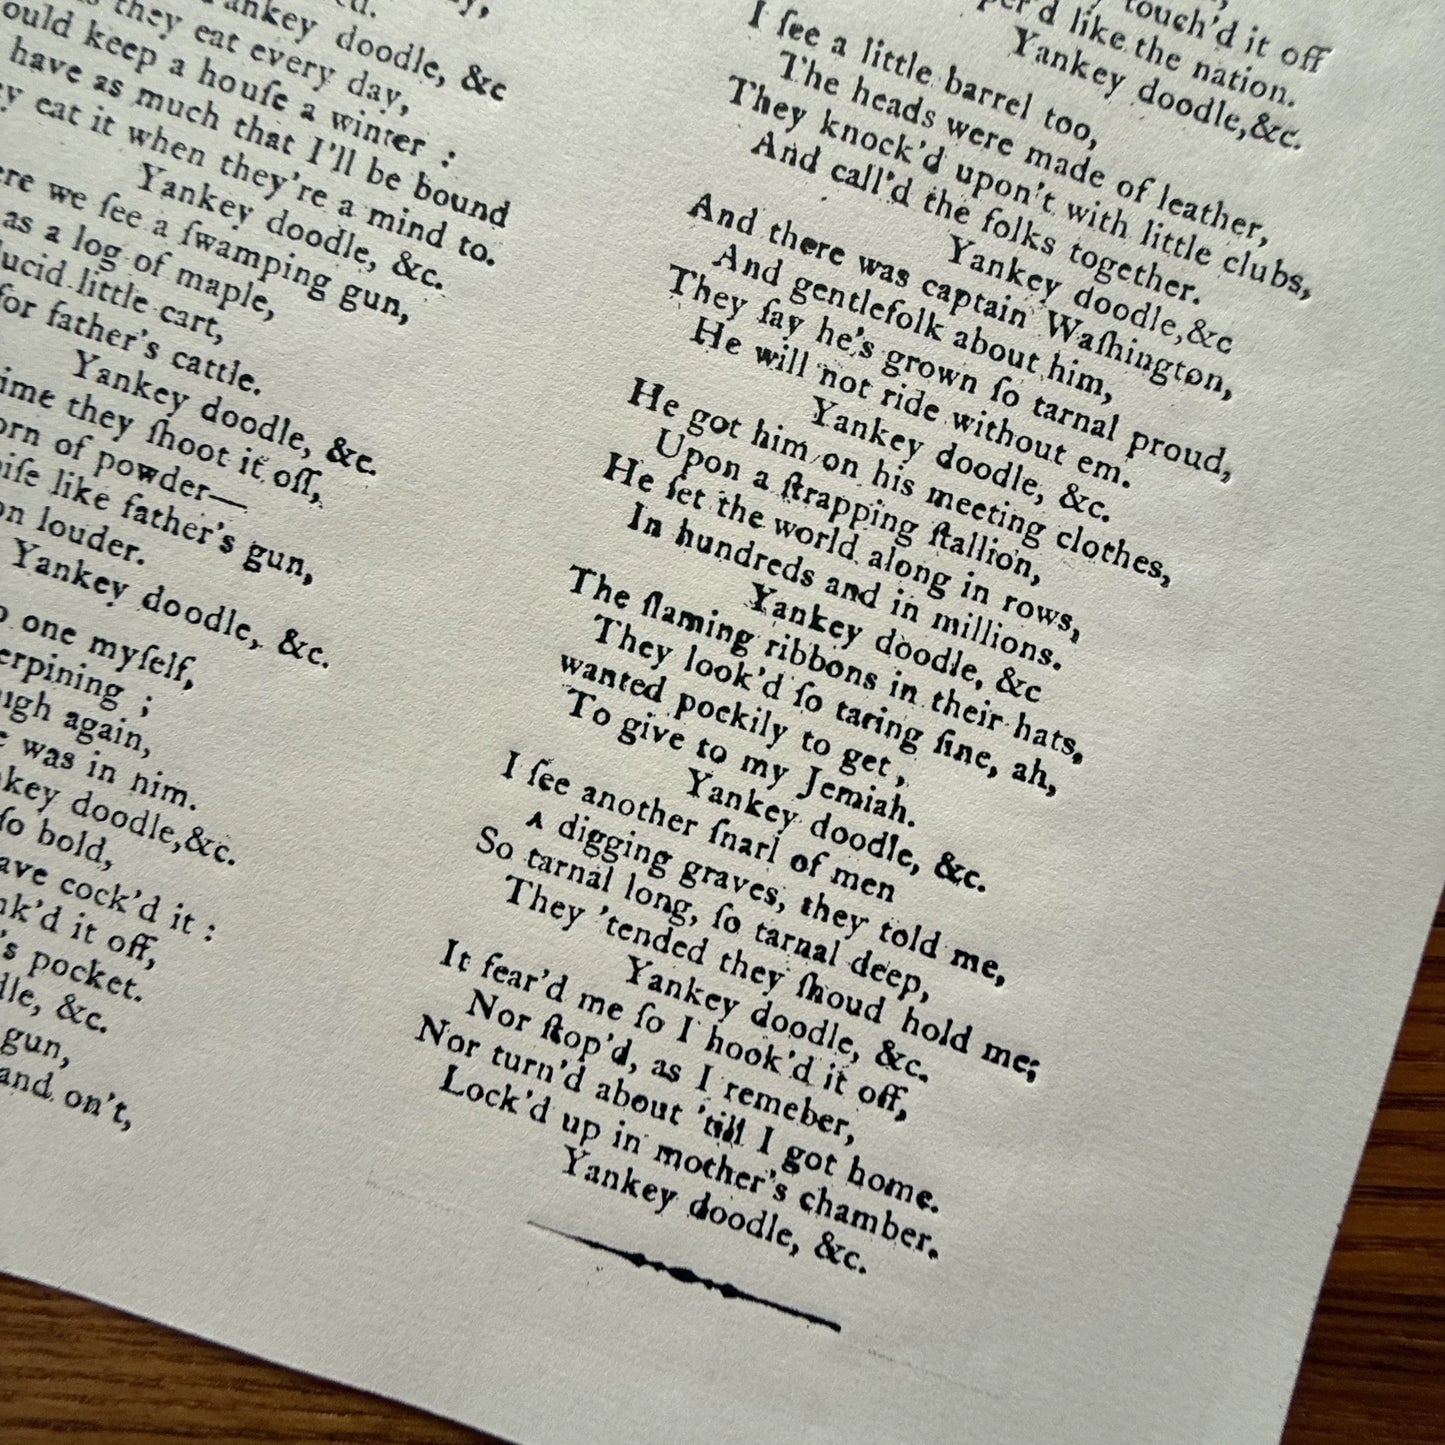 Yankey doodle, &c
they eat every day,
ould keep a houſe a winter :
have as much that I'll be bound
eat it when they're a mind to.
Yankey doodle, &c.
ere we ſee a ſwamping gun,
as a log of maple,
ucid little cart,
for father's cattle.
Yankey doodle, &c.
ime they ſhoot it off,
orn of powder—
iſe like father's gun,
on louder.
Yankey doodle, &c.
one myſelf,
erpining ;
ugh again,
was in him.
nkey doodle,&c.
ſo bold,
ave cock'd it :
nk'd it off,
's pocket.
dle, &c.
gun,
and on't,
touch'd it off
per'd like the nation.
Yankey doodle,&c.
I ſee a little barrel too,
The heads were made of leather,
They knock'd upon't with little clubs,
And call'd the folks together.
Yankey doodle,&c
And there was captain Waſhington,
And gentlefolk about him,
They ſay he's grown ſo tarnal proud,
He will not ride without em.
Yankey doodle, &c.
He got him on his meeting clothes,
Upon a ſtrapping ſtallion,
He ſet the world along in rows,
In hundreds and in millions.
Yankey doodle, &c
The flaming ribbons in their hats,
They look'd ſo taring fine, ah,
wanted pockily to get,
To give to my Jemiah.
Yankey doodle, &c.
I ſee another ſnarl of men
A digging graves, they told me,
So tarnal long, ſo tarnal deep,
They 'tended they ſhoud hold me;
Yankey doodle, &c.
It fear'd me ſo I hook'd it off,
Nor ſtop'd, as I remeber,
Nor turn'd about 'till I got home.
Lock'd up in mother's chamber.
Yankey doodle, &c.